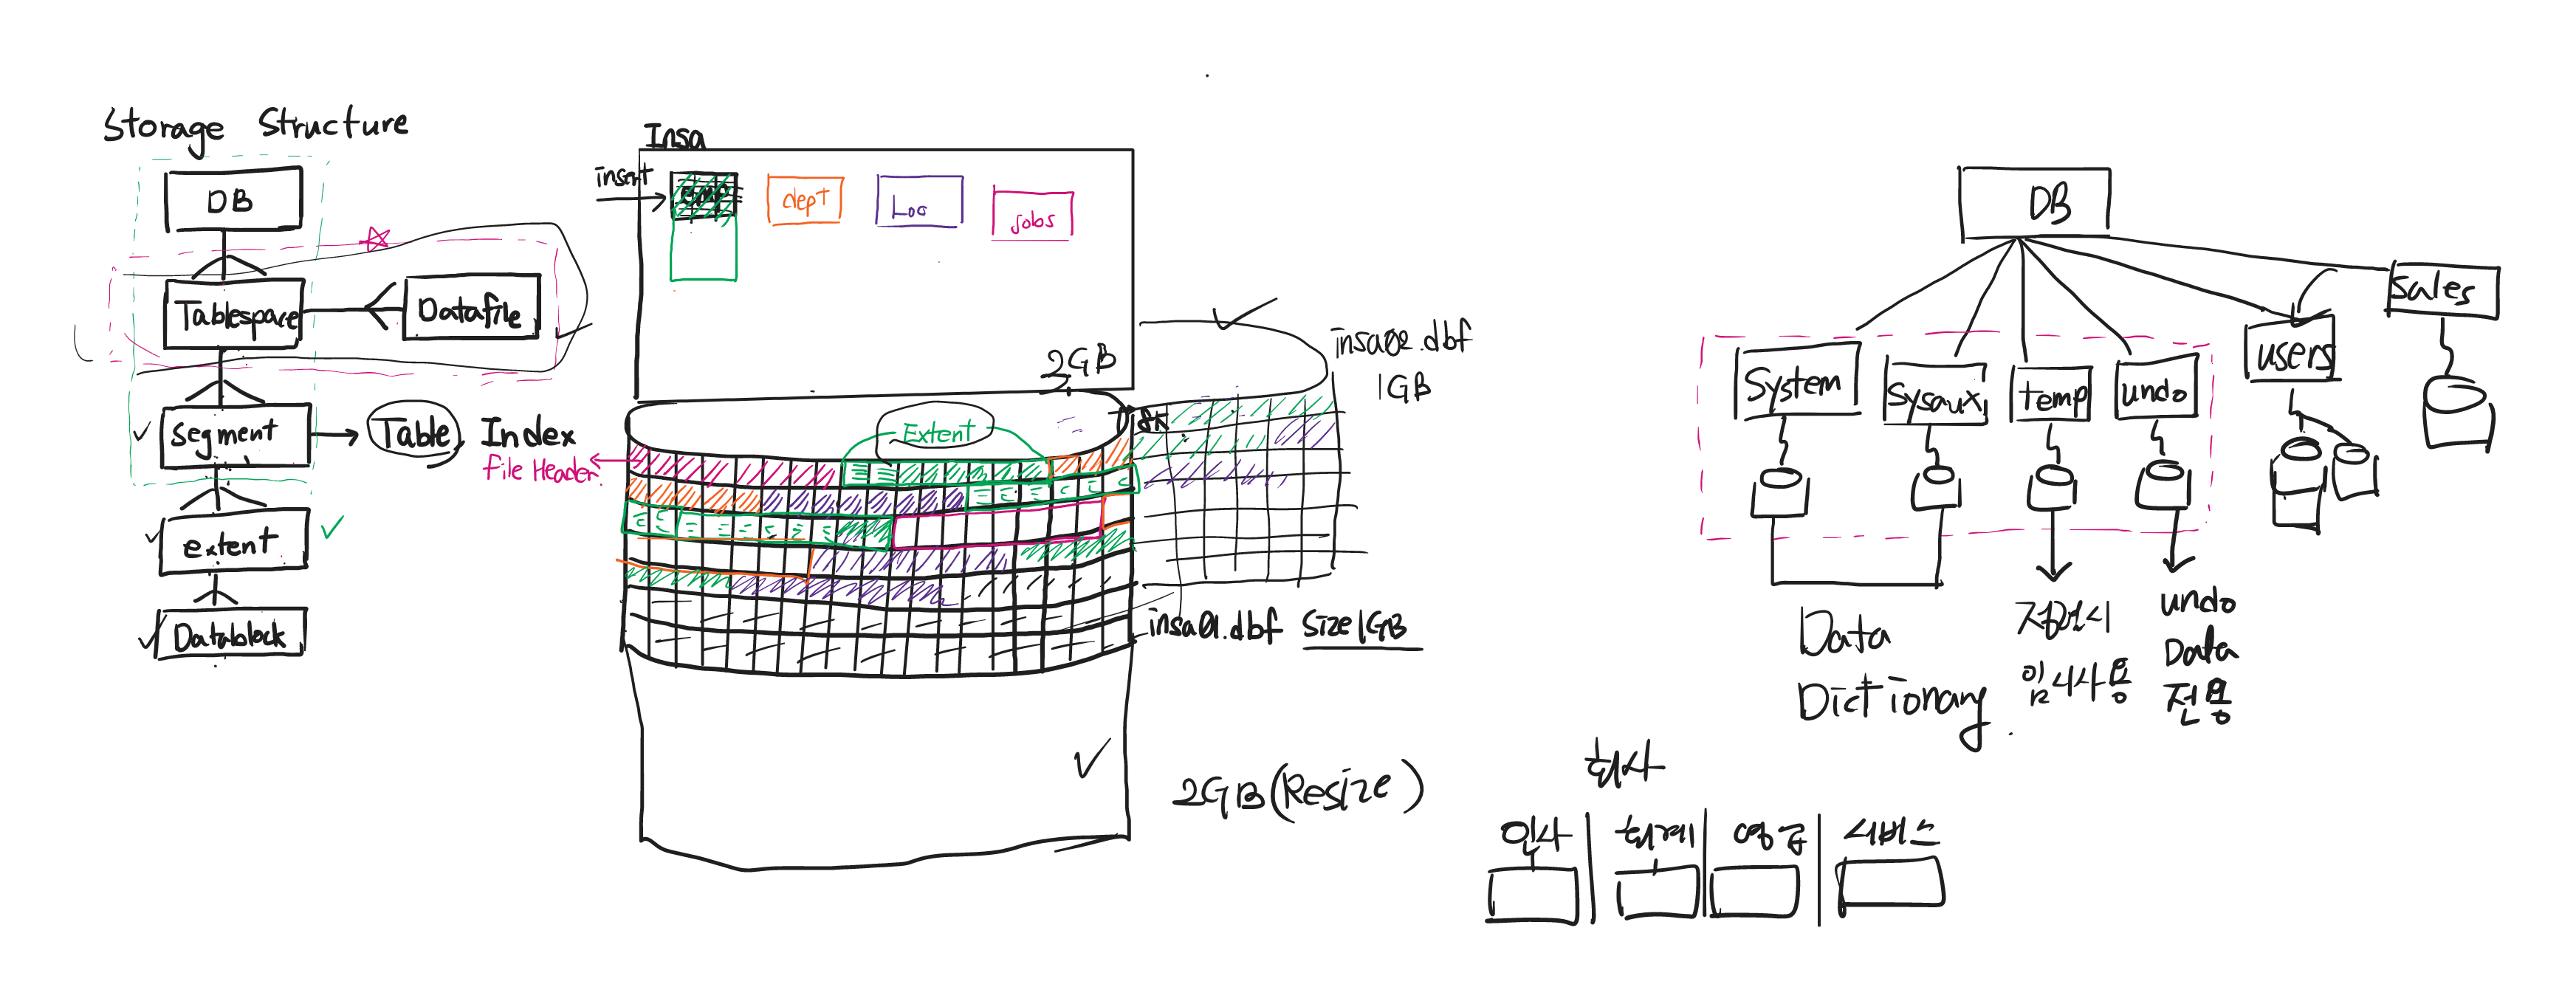 Storage Structure
DB
Tablespace
Datafile
segment
Table, Index
File Header
extent
Datablock
Insa
insert
dept
Loc
jobs
2GB
Extent
8k
insa02.dbf
1GB
insa01.dbf Size 1GB
2GB(Resize)
DB
System
Sysaux
temp
undo
users
Sales
Data
Dictionary
임시사용
undo
Data
전용
회사
인사
회계
영공
서비스